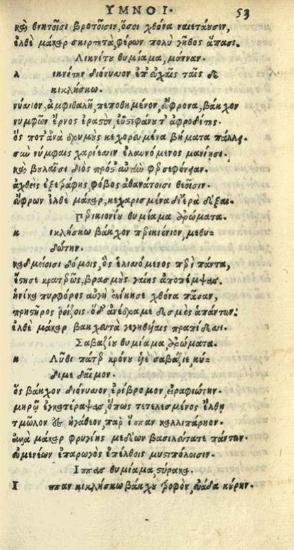 ΥΜΝΟΙ. 53
καὶ θνητοῖσι βροτοῖσιν, ὅσοι χθόνα ναιετάουσιν,
ἐλθὲ μάκαρ σκιρτητὰ, φέρων πολὺ γῆθος ἅπασι.
Λικνίτε θυμίαμα, μάνναν.
Λ ικνίτην διόνυσον ἐπ' εὐχαῖς ταῖσδε
κικλήσκω,
νύσιον, ἀμφιθαλῆ, πεποθημένον, εὔφρονα, βάκχον
νυμφῶν ἔρνος ἐραστὸν ἐϋστεφάνου τ' ἀφροδίτης
ὅς ποτ' ἀνὰ δρυμοὺς κεχορευμένα βήματα πάλλες
σὺν νύμφαις χαρίεσσιν ἐλαυνόμενος μανίῃσι.
καὶ βουλαῖσι διὸς πρὸς ἀγαυὴν φερσεφόνειαν
ἀχθεὶς ἐξετράφης φόβος ἀθανάτοισι θεοῖσιν.
εὔφρων ἐλθὲ μάκαρ, κεχαρισμένα δ' ἱερὰ δέξαι.
Περικιονίου θυμίαμα ἀρώματα.
Κ ικλήσκω βάκχον περικιόνιον, μεθυδώτην.
καδμείοισι δόμοις, ὃς ἑλισσόμενος περὶ πάντα,
ἔστησε κρατερῶς, βρασμοὺς γαίης ἀποπέμψας
ἡνίκα πυρφόρος αὐγὴ ἐκίνησε χθόνα πᾶσαν,
πρηστῆρος ῥοίζοις, ὁ δ' ἀνέδραμε δεσμὸς ἁπάντων.
ἐλθὲ μάκαρ βακχευτὰ γεγηθυίαις πραπίδεσσι.
Σαβαζίου θυμίαμα ἀρώματα.
Κ λῦθι πάτερ κρόνου υἱὲ σαβάζιε, κύδιμε δαῖμον.
ὃς βάκχον διόνυσον ἐρίβρομον, εἰραφιώτην.
μηρῷ ἐγκατέραψας, ὅπως τετελεσμένος ἔλθῃ
τμῶλον ἐς ἠγάθεον, παρ' ἵππαν καλλιπάρηον.
ἀλλὰ μάκαρ φρυγίης μεδέων βασιλεύτατε πάντων.
εὐμενέων ἐπαρωγὸς ἐπέλθοις μυστιπόλοισιν.
Ἵππας θυμίαμα στύρακα.
Ι ππαν κικλήσκω βάκχου τροφὸν, εὐάδα κούρην.